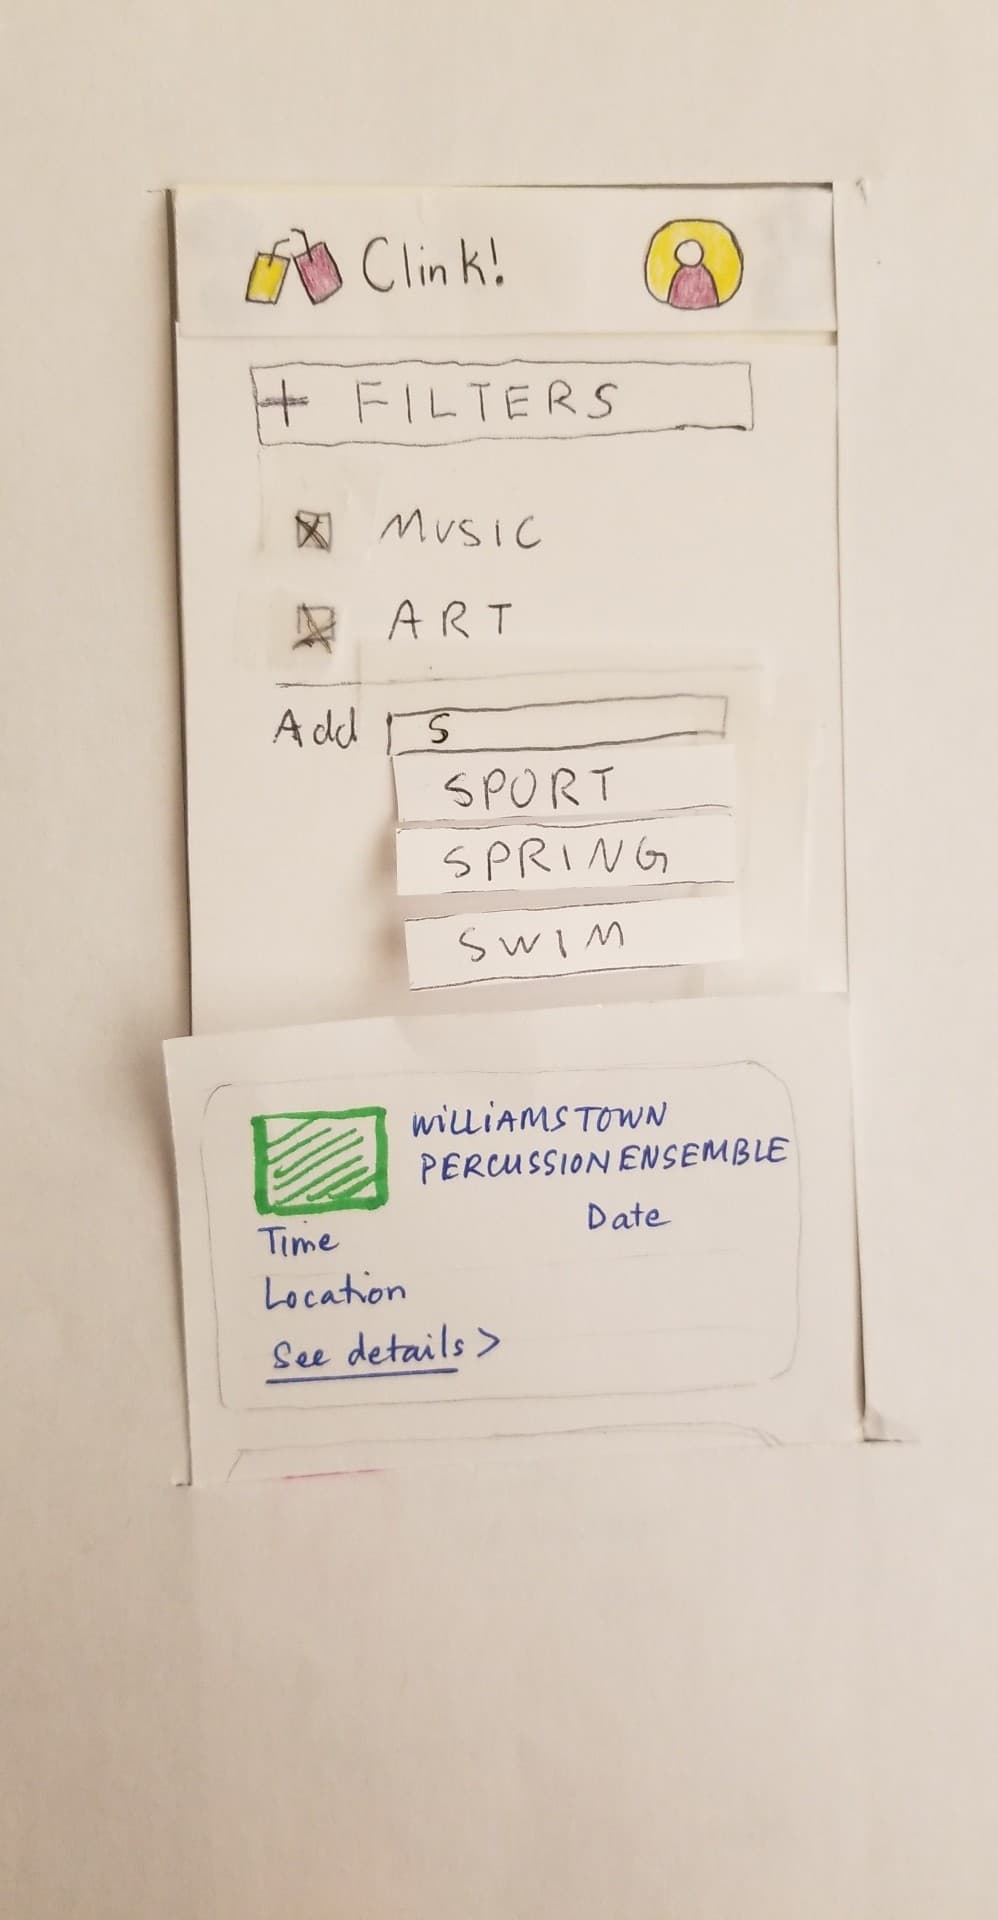 Clink!
+ FILTERS
MUSIC
ART
Add S
SPORT
SPRING
SWIM
WILLIAMSTOWN
PERCUSSION ENSEMBLE
Date
Time
Location
See details >